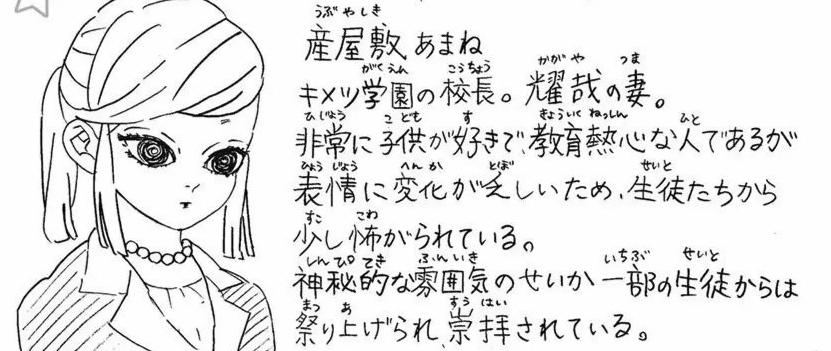 うぶやしき
産屋敷あまね
がくえん こうちょう かがや つま
キメツ学園の校長。耀哉の妻。
ひじょう こども す きょういくねっしん ひと
非常に子供が好きで、教育熱心な人であるが
ひょうじょう へんか とぼ せいと
表情に変化が乏しいため、生徒たちから
すこ こわ
少し怖がられている。
しんぴてき ふんいき いちぶ せいと
神秘的な雰囲気のせいか一部の生徒からは
まつ あ すうはい
祭り上げられ、崇拝されている。